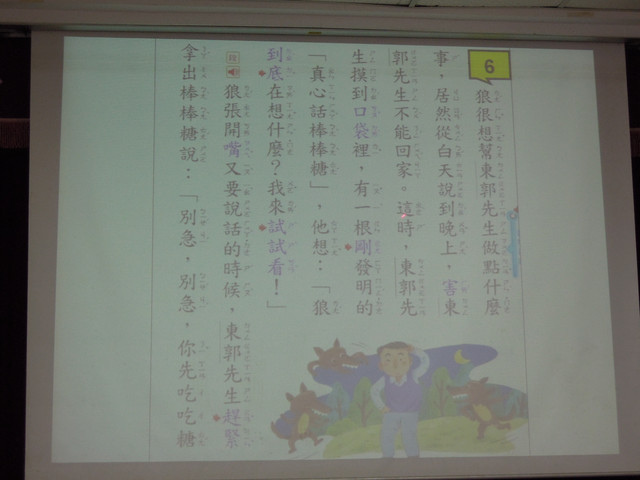 6
狼很想幫東郭先生做點什麼
事，居然從白天說到晚上，害東
郭先生不能回家。這時，東郭先
生摸到口袋裡，有一根剛發明的
「真心話棒棒糖」，他想：「狼
到底在想什麼？我來試試看！」
狼張開嘴又要說話的時候，東郭先生趕緊
拿出棒棒糖說：「別急，別急，你先吃吃糖